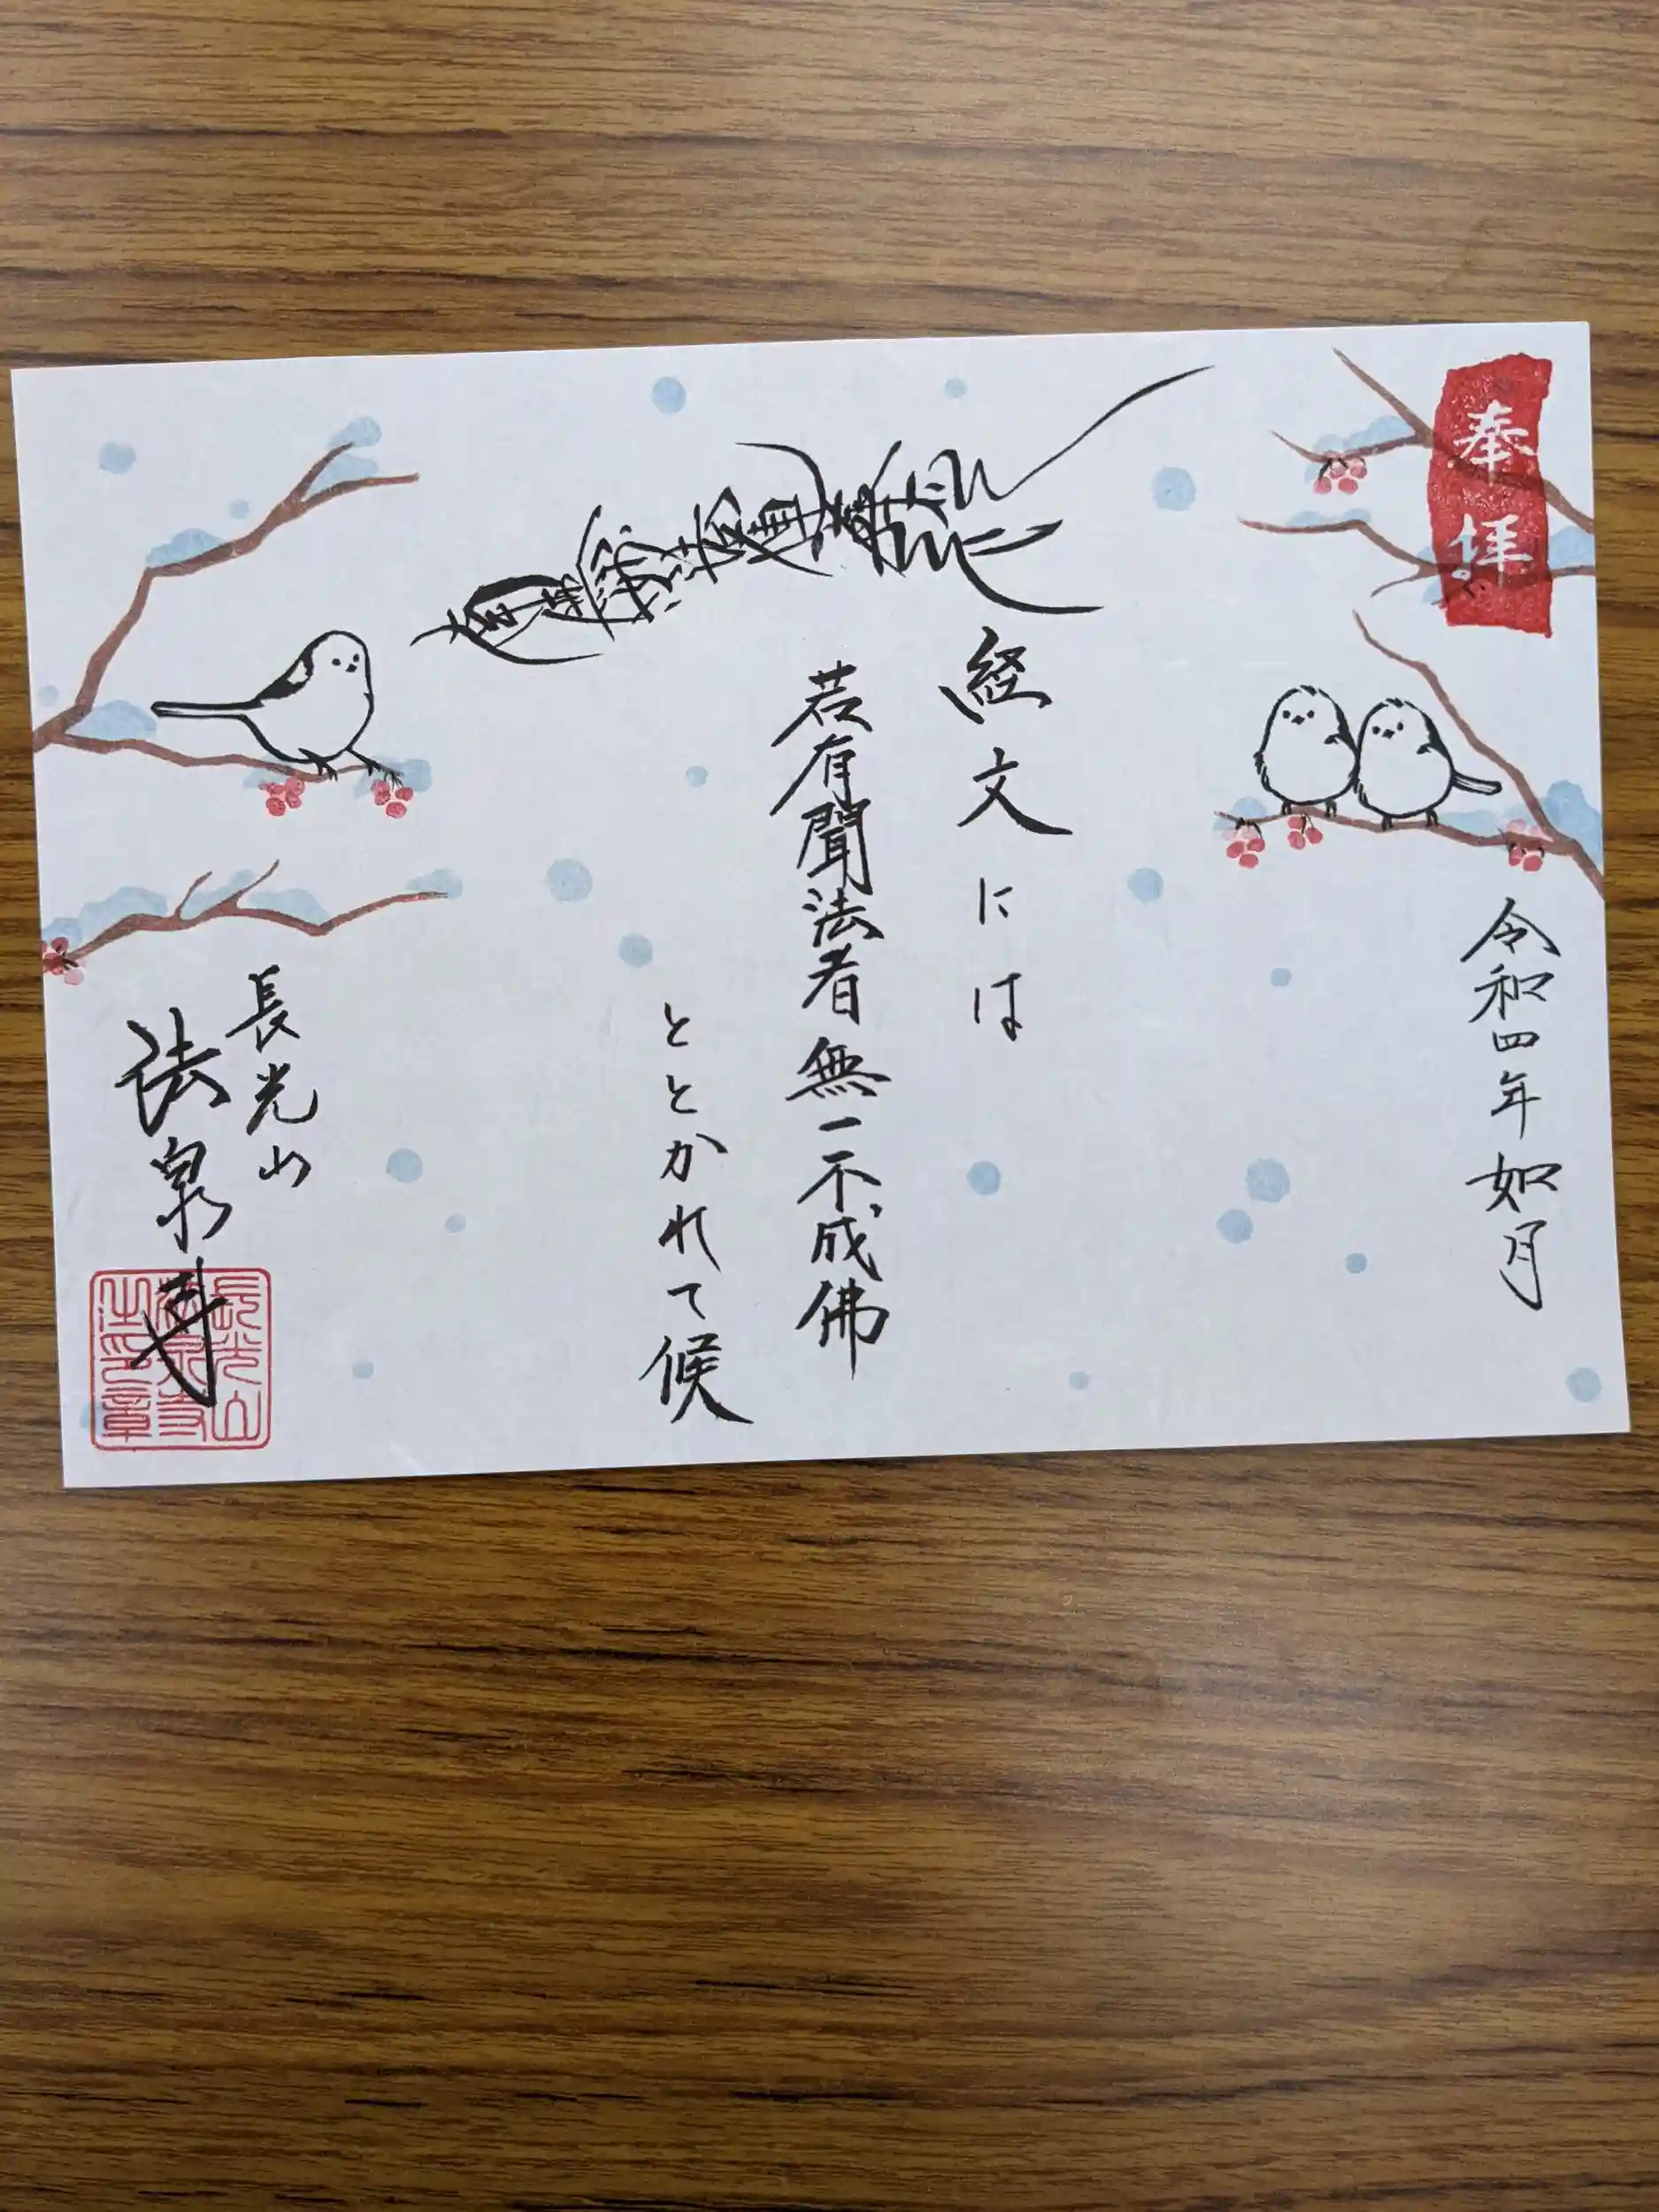 奉拝
令和四年 如月
南無妙法蓮華経
経文には
若有聞法者無一不成佛
ととかれて候
長光山
法泉寺
長光山
法泉寺
之印章